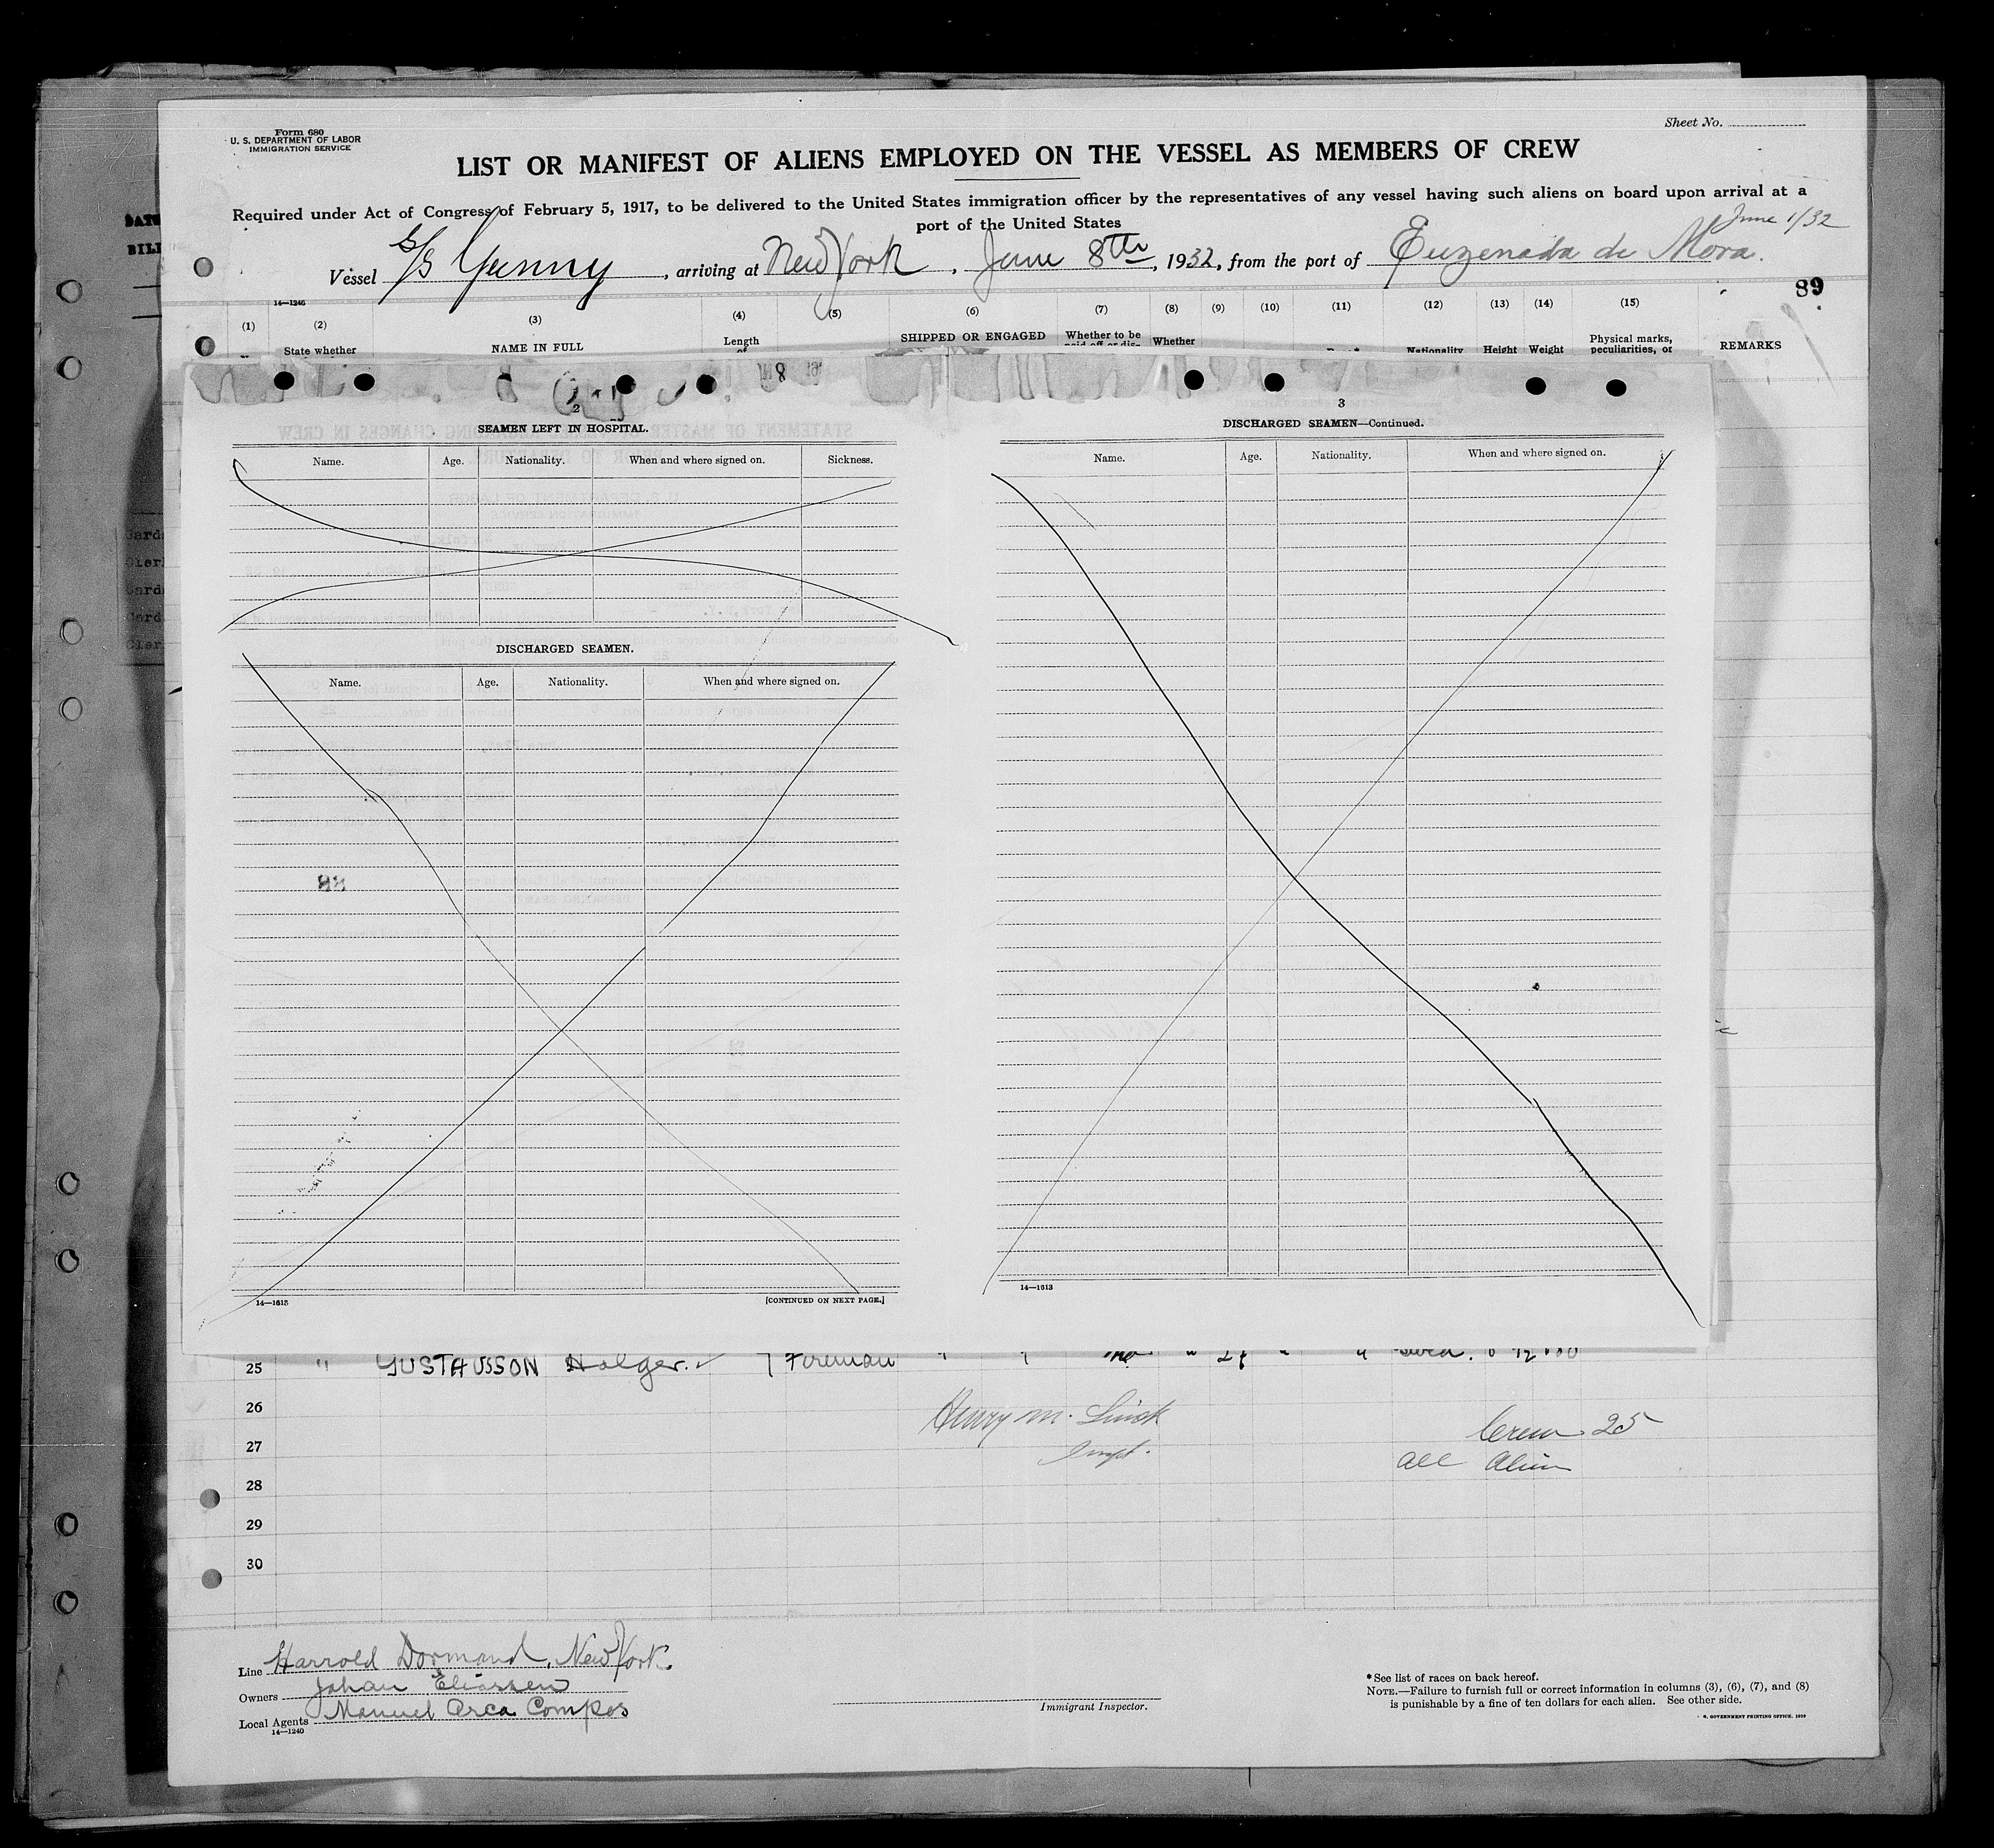 Form 680
U. S. DEPARTMENT OF LABOR
IMMIGRATION SERVICE
Sheet No.
LIST OR MANIFEST OF ALIENS EMPLOYED ON THE VESSEL AS MEMBERS OF CREW
Required under Act of Congress of February 5, 1917, to be delivered to the United States immigration officer by the representatives of any vessel having such aliens on board upon arrival at a
port of the United States
June 1/32
Vessel S/S Gunny, arriving at New York, June 8th, 1932, from the port of de Mora.
89
14-1246
(1) (2) (3) (4) (5) (6) (7) (8) (9) (10) (11) (12) (13) (14) (15)
State whether NAME IN FULL Length of SHIPPED OR ENGAGED Whether to be paid off or dis- Whether Nationality Height Weight Physical marks, peculiarities, or REMARKS
2
SEAMEN LEFT IN HOSPITAL.
Name. Age. Nationality. When and where signed on. Sickness.
DISCHARGED SEAMEN.
Name. Age. Nationality. When and where signed on.
88
14—1613 [CONTINUED ON NEXT PAGE.]
3
DISCHARGED SEAMEN—Continued.
Name. Age. Nationality. When and where signed on.
14—1613
25 " GUSTAUSSON Holger. Fireman
26
27
28
29
30
Henry M.
Inspt.
Crew 25
all Alien
Line Harrold Dormand, New York.
Owners Johan Eliassen
Local Agents Manuel Arca Compos
14—1240
Immigrant Inspector.
*See list of races on back hereof.
NOTE.—Failure to furnish full or correct information in columns (3), (6), (7), and (8)
is punishable by a fine of ten dollars for each alien. See other side.
GOVERNMENT PRINTING OFFICE.